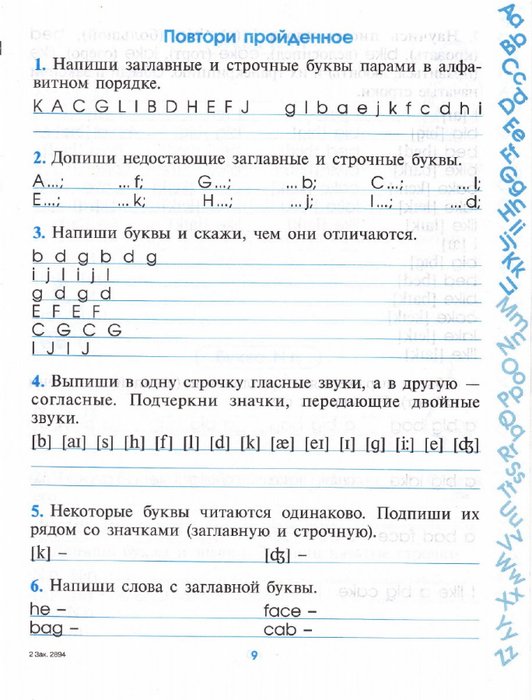 Повтори пройденное
1. Напиши заглавные и строчные буквы парами в алфа-
витном порядке.
K A C G L I B D H E F J g l b a e j k f c d h i
2. Допиши недостающие заглавные и строчные буквы.
A...; ...f; G...; ...b; C...; ...l;
E...; ...k; H...; ...j; I...; ...d;
3. Напиши буквы и скажи, чем они отличаются.
b d g b d g
i j l i j l
g d g d
E F E F
C G C G
I J I J
4. Выпиши в одну строчку гласные звуки, а в другую —
согласные. Подчеркни значки, передающие двойные
звуки.
[b] [aɪ] [s] [h] [f] [l] [d] [k] [æ] [eɪ] [ɪ] [g] [i:] [e] [ʤ]
5. Некоторые буквы читаются одинаково. Подпиши их
рядом со значками (заглавную и строчную).
[k] – [ʤ] –
6. Напиши слова с заглавной буквы.
he – face –
bag – cab –
2 Зак. 2894
9
Aa
Bb
Cc
Dd
Ee
Ff
Gg
Hh
Ii
Jj
Kk
Ll
Mm
Nn
Oo
Pp
Qq
Rr
Ss
Tt
Uu
Vv
Ww
Xx
Yy
Zz